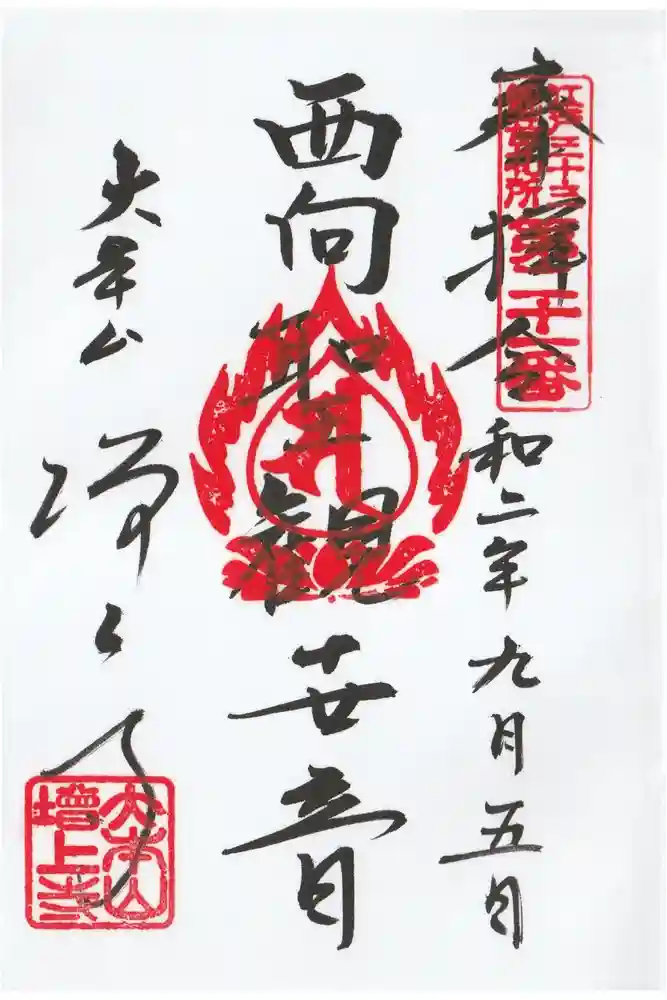 奉拝 令和二年九月五日
江戸三十三
観音札所
第二十一番
西向聖観世音
大本山 増上寺
大本山
増上寺